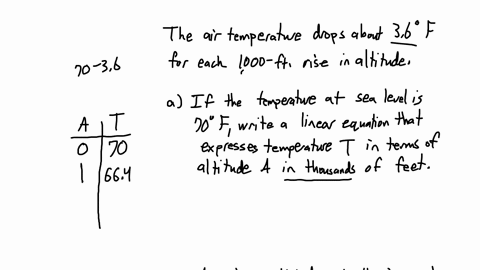 The air temperature drops about 3.6° F
for each 1,000-ft. rise in altitude.
70-3.6
a) If the temperature at sea level is
70° F, write a linear equation that
expresses temperature T in terms of
altitude A in thousands of feet.
A T
0 70
1 66.4